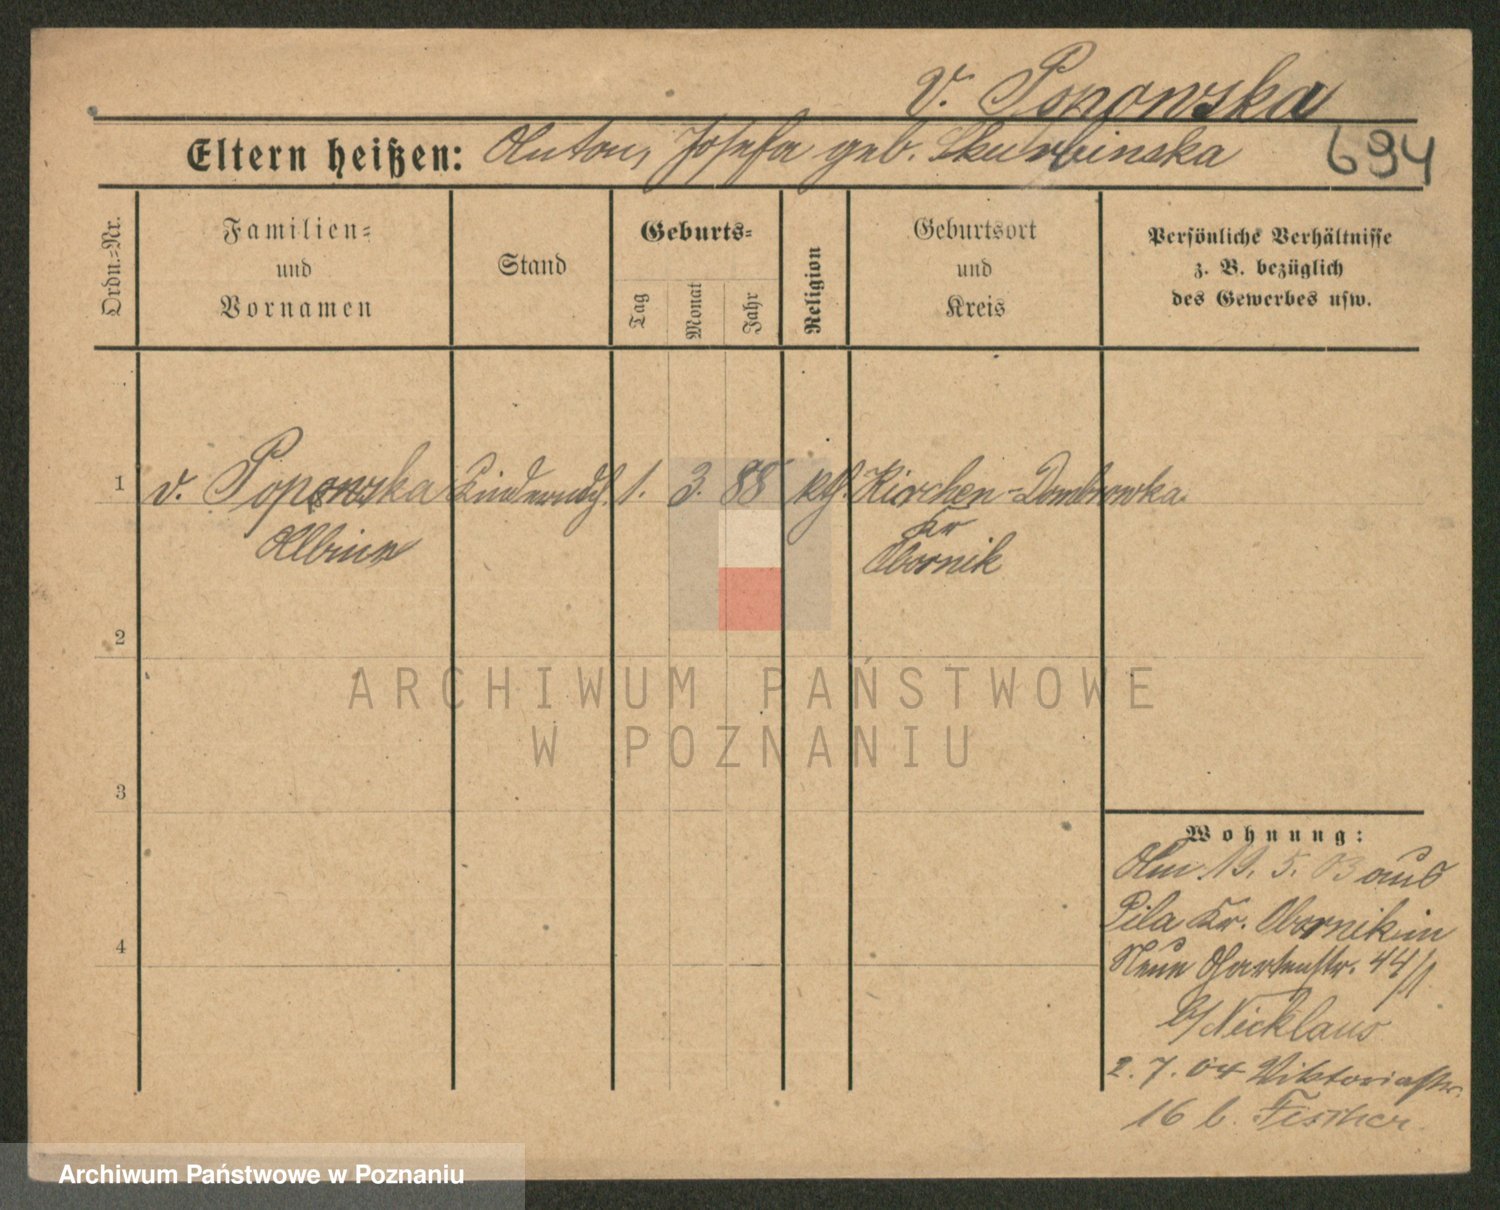 v. Ponowska
Eltern heißen: Anton, Josefa geb. Skurbinska
694
Ordn.-Nr.
Familien- und Vornamen
Stand
Geburts-
Tag
Monat
Jahr
Religion
Geburtsort und Kreis
Persönliche Verhältnisse
z. B. bezüglich
des Gewerbes usw.
1 v. Popowska Kindermdch. 1. 3. 88 kth. Kirchen-Dombrowka
Albine
Kr
Obornik
2
3
4
Wohnung:
Am 19. 5. 03 aus
Pila Kr. Obornik in
Neue Gartenstr. 44/
b/Nicklaus
2. 7. 04 Viktoriastr.
16 b. Fischer.
ARCHIWUM PAŃSTWOWE
W POZNANIU
Archiwum Państwowe w Poznaniu